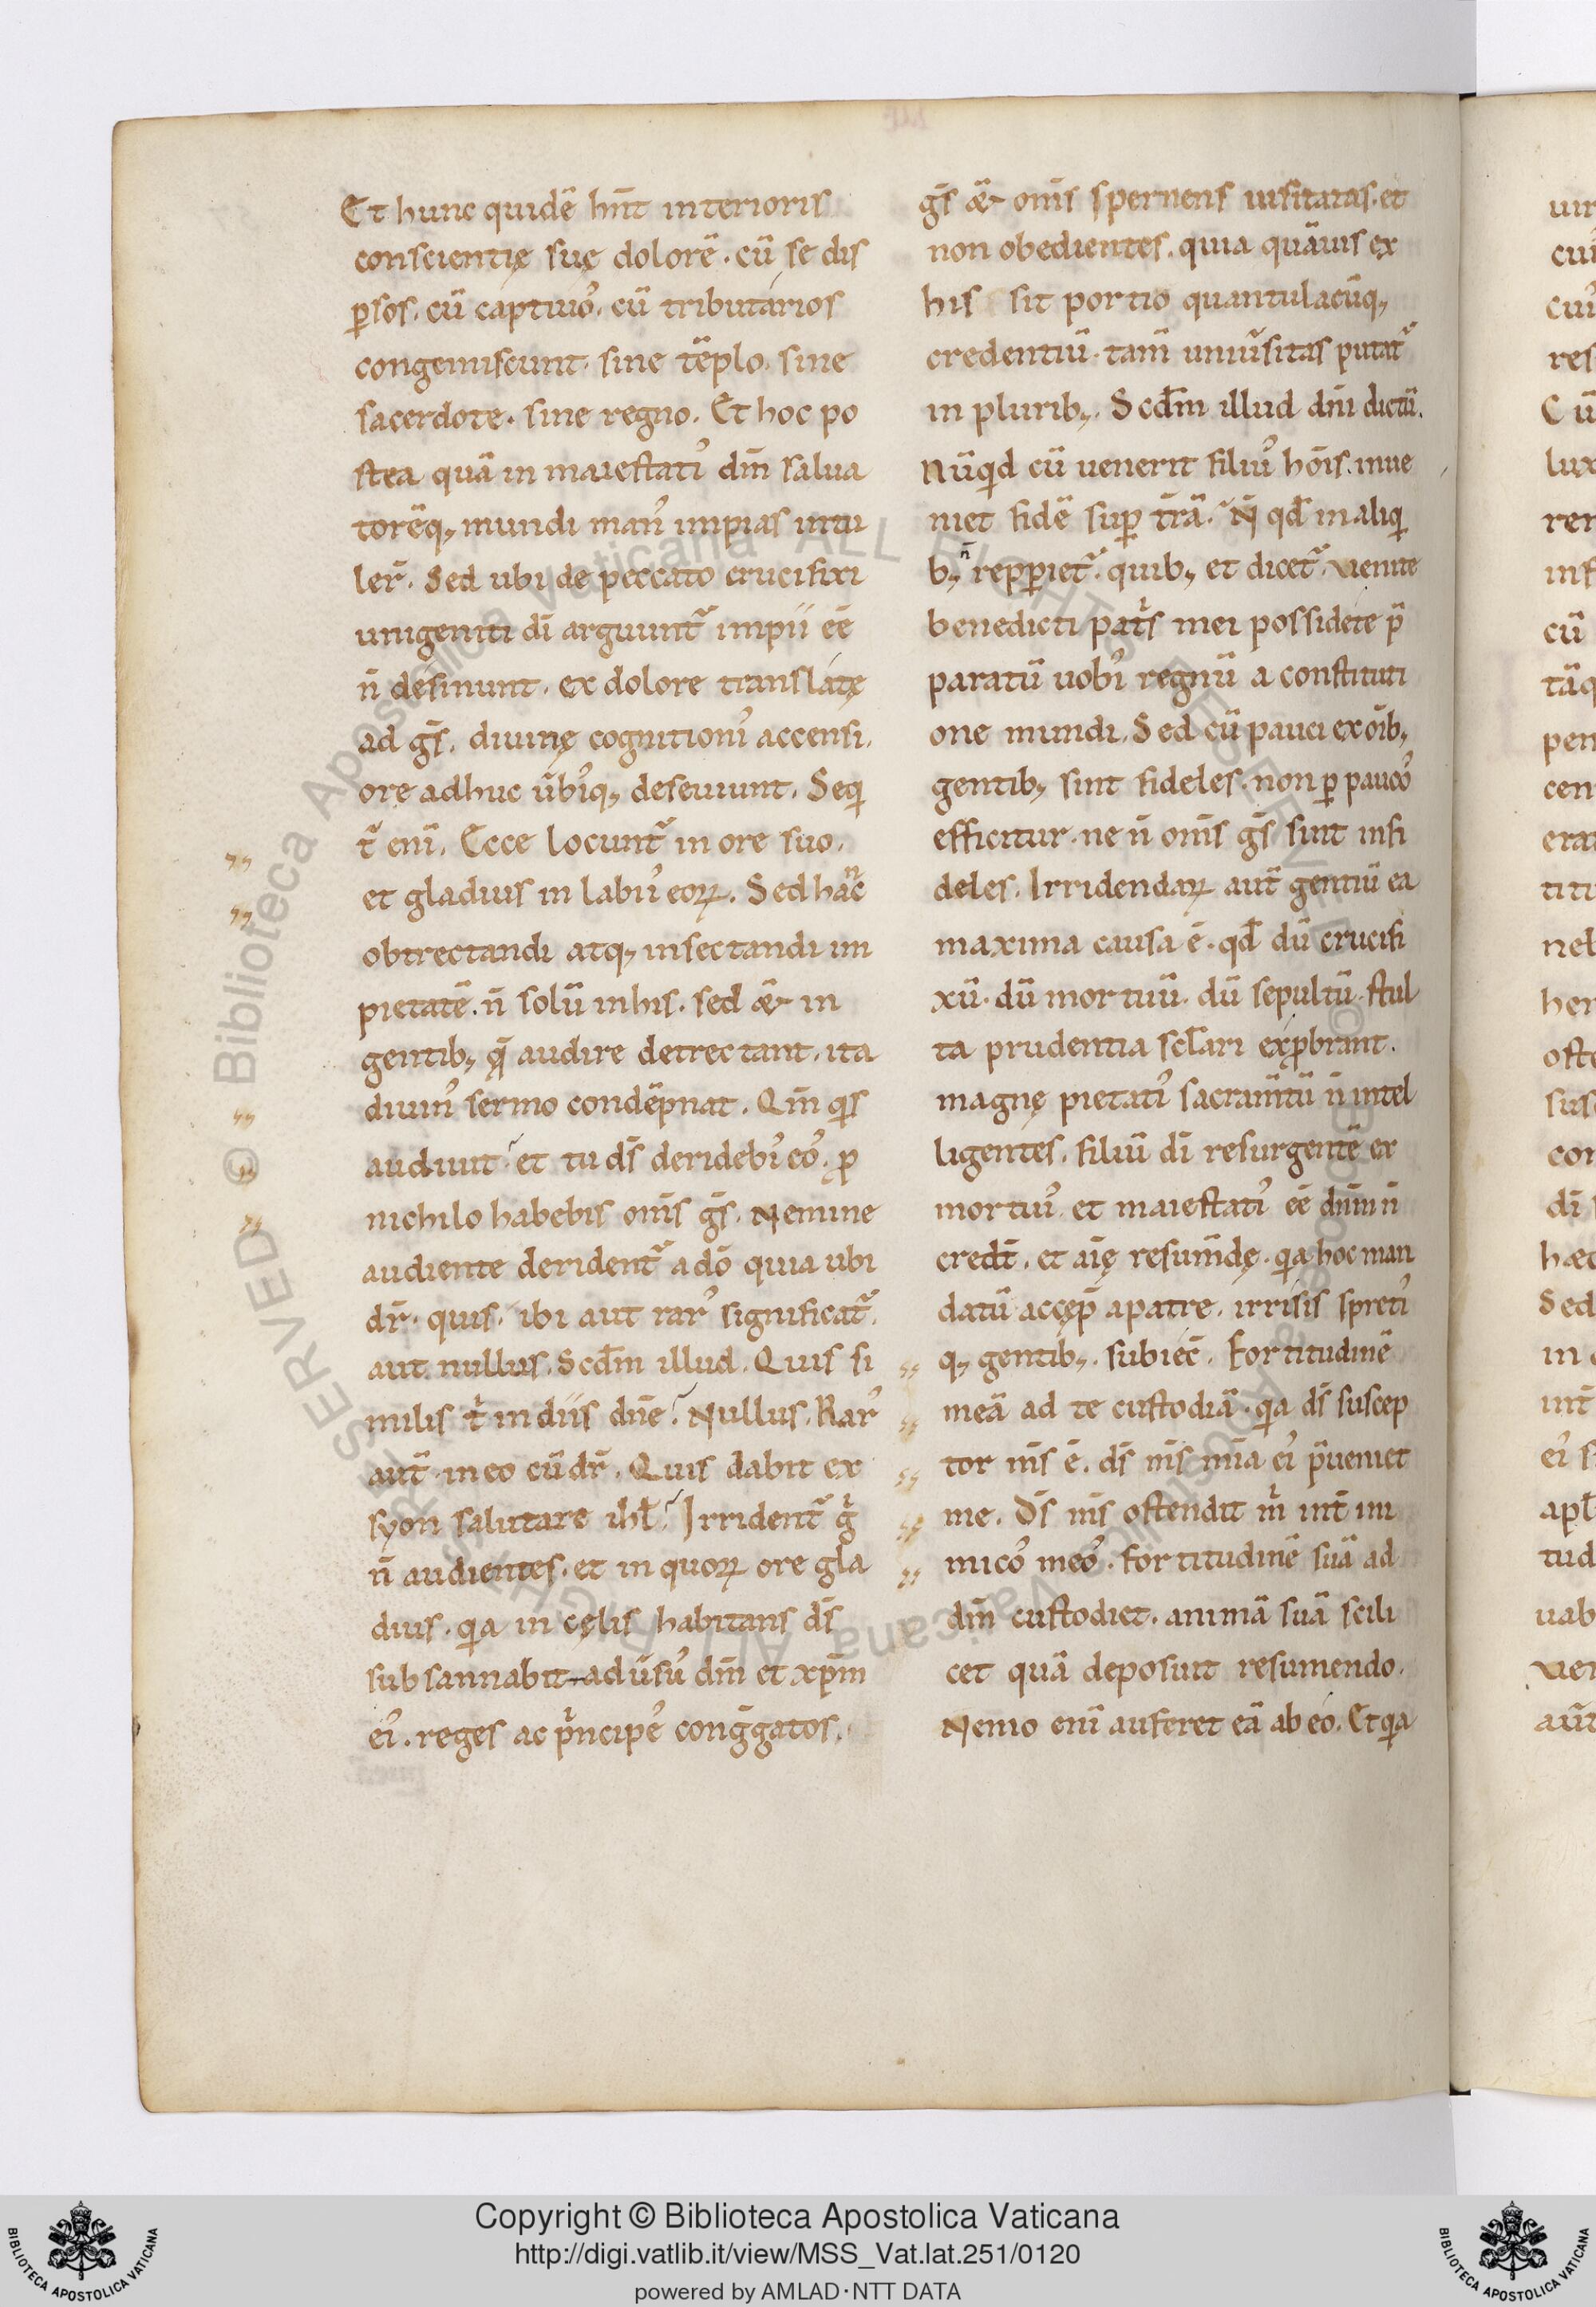 Et hunc quidē hn̄t interioris
conscientię suę dolorē. cū se dis
ꝑsos. cū captiuoꝰ. cū tributários
congemiscunt. sine tēplo. sine
sacerdote. sine regno. Et hoc po
stea quā in maiestatiꝰ dn̄m salua
torēq; mundi manꝰ impias intu
ler̄. Sed ubi de peccato crucifixi
unigeniti dī arguunt᷑ impii eē
n̄ désinunt. ex dolore translátę
ad gs̄. diuinę cognitioniꝰ accensi.
ore adhuc ūbiꝰq; deseuiunt. Seqi
t᷑ enī. Ecce locunt᷑ in ore suo.
et gladius in labiꝰ eoꝝ. Sed hāc
obtrectandi atq; insectandi im
pietatē. n̄ solū in his. sed ǣ in
gentib; q̨̄ audire detrectant. ita
diuinꝰ sermo condēpnat. Qm̄ qis
audiuit? et tu ds̄ deridebiꝰ eoꝰ. ꝓ
nichilo habebis om̄s gs̄. Nemine
audiente derident᷑ a dō quia ubi
dr̄. quis. ibi aut rarꝰ significat᷑.
aut nullus. Scdm̄ illud. Quis si
milis t̍ in diis dn̄e? Nullus. Rarꝰ
aut̄ in eo cū dr̄. Quis dabit ex
syon salutare isrl̄? Irrident᷑ g̍
n̄ audientes. et in quoꝝ ore gla
dius. qia in cęlis habitans ds̄
subsannabit adūsuꝰ dn̄m et xp̄m
eiꝰ. reges ac pͥncipeꝰ congḡatos.
gs̄ ǣ om̄s spernens uisitatas. et
non obedientes. quia quāuis ex
his sit portio quantulacūq;
credentiū. tam̄ uniūsitas putat᷑
in plurib;. Scdm̄ illud dn̄i dictū.
Nūqid cū uenerit filiuꝰ hōis. inue
niet fidē suꝑ tr̄ā? N̄ qd̄ in aliqi
b; n̄ repꝑiet᷑. quib; et dicet᷑. uenite
benedicti pat̍s mei possidéte p̄
paratū uobiꝰ regnū a constituti
one mundi. Sed cū pauci ex oīb;
gentib; sint fideles. non ꝑ paucoꝰ
efficitur. ne n̄ om̄s gs̄ sint infi
deles. Irridendaꝝ aut̄ gentiū ea
maxima causa ē. qd̄ dū crucifi
xū. dū mortuū. dū sepultū. stul
ta prudentia scl̄ari exꝓbrant.
magnę pietatiꝰ sacram̄tū n̄ intel
ligentes. filiū dī resurgentē ex
mortuiꝰ et maiestatiꝰ eē dn̄m n̄
credt̄. et aīę resum̄dę. qia hoc man
datū accęp̄ a patre. irrisis spretiꝰ
q; gentib;. subiec̄. Fortitudinē
meā ad te custodiā. qia ds̄ suscep
tor ms̄ ē. ds̄ ms̄ mīa eiꝰ p̄ueniet
me. Ds̄ ms̄ ostendit m̍ int̄ ini
micoꝰ meoꝰ. fortitudinē suā ad
dn̄m custodiet. animā suā scili
cet quā deposuit resumendo.
Nemo enī auferet eā ab eo. Et qia
Copyright © Biblioteca Apostolica Vaticana
http://digi.vatlib.it/view/MSS_Vat.lat.251/0120
powered by AMLAD·NTT DATA